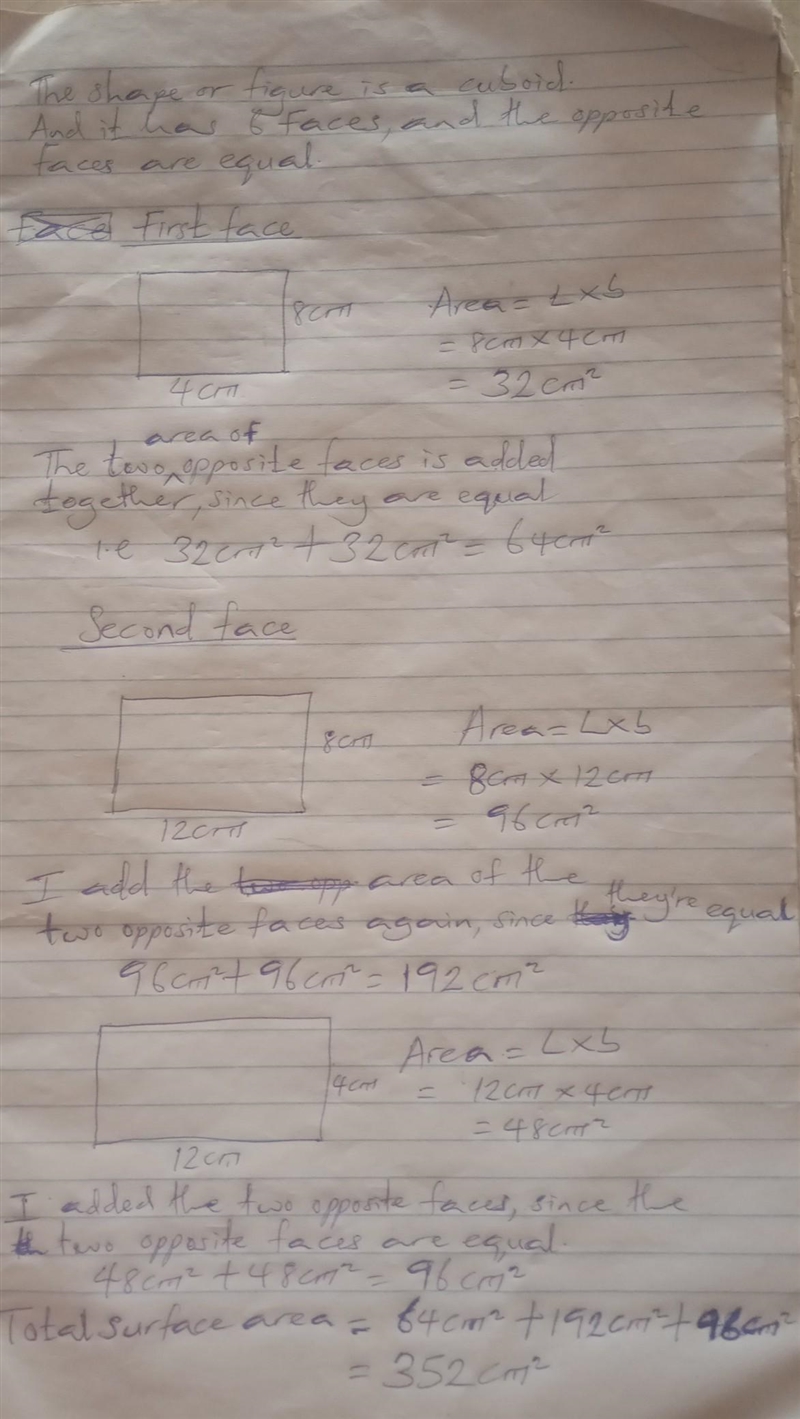 The shape or figure is a cuboid.
And it has 6 faces, and the opposite
faces are equal.
Face First face
8cm
4cm
Area = L×b
= 8cm × 4cm
= 32cm²
area of
The two opposite faces is added
together, since they are equal
i.e 32cm² + 32cm² = 64cm²
Second face
8cm
12cm
Area = L×b
= 8cm × 12cm
= 96cm²
I add the two opp area of the
two opposite faces again, since they're equal
96cm² + 96cm² = 192cm²
4cm
12cm
Area = L×b
= 12cm × 4cm
= 48cm²
I added the two opposite faces, since the
two opposite faces are equal.
48cm² + 48cm² = 96cm²
Total surface area = 64cm² + 192cm² + 96cm²
= 352cm²